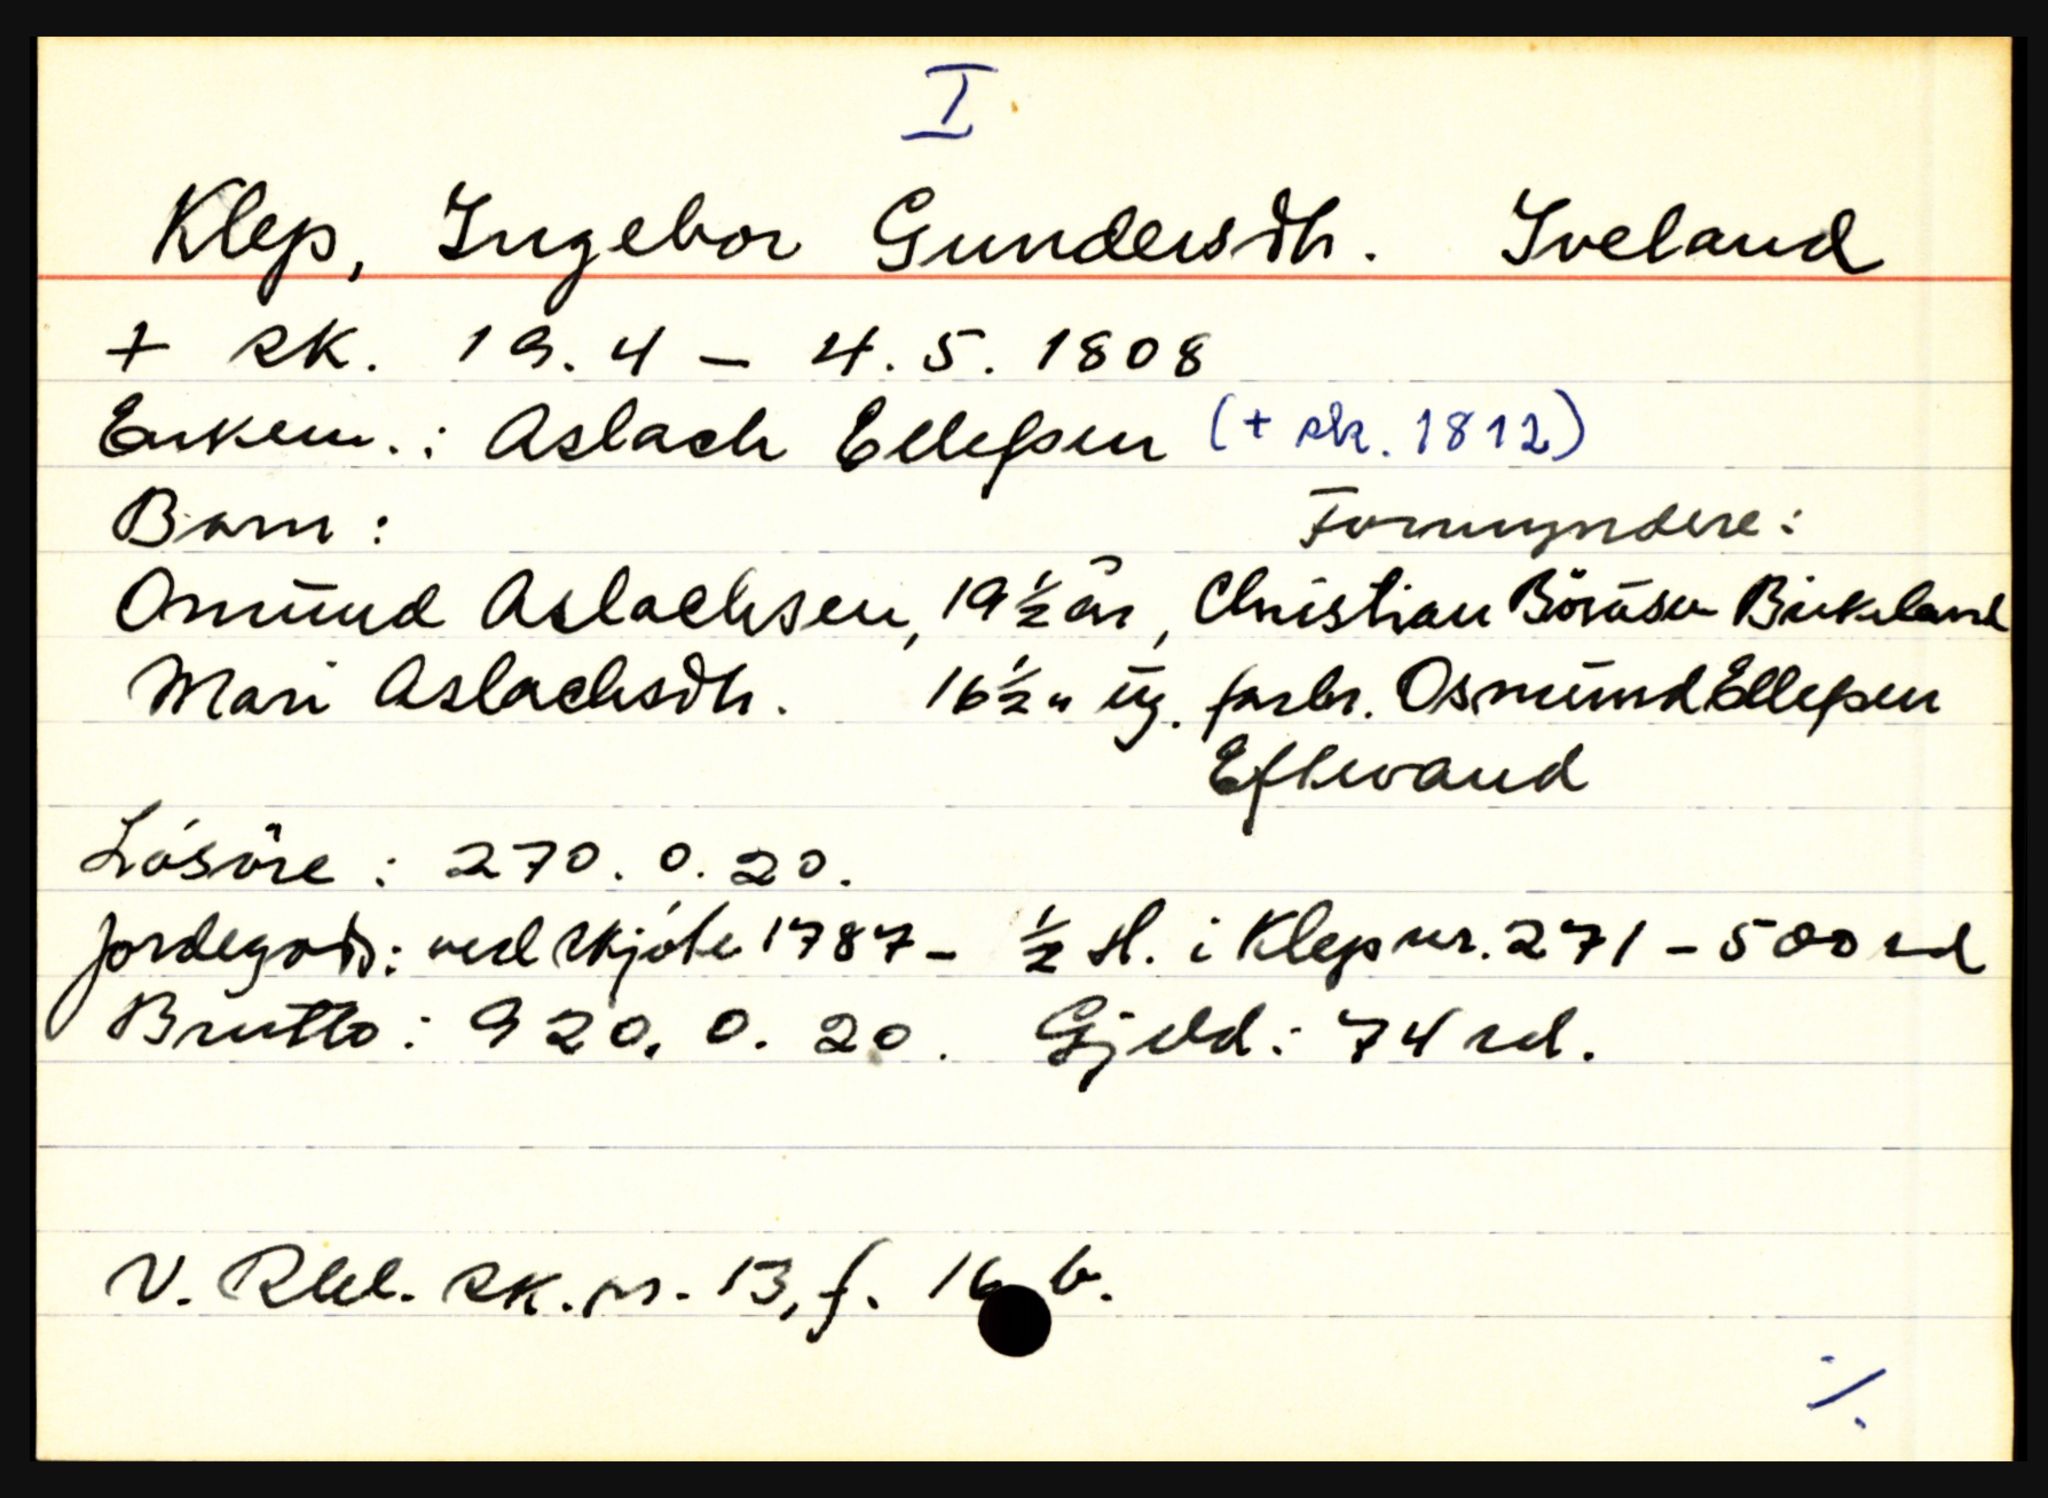 I
Klep, Ingebor Gundersdtr. Iveland
+ sk. 19.4 – 4.5. 1808
Enkem.: Aslach Elleſsen (+ sk. 1812)
Barn: Formyndere:
Osmund Aslachsen, 19 ½ år, Christian Börüsen Birkeland
Mari Aslachsdtr. 16 ½ " üg. farbr. Osmünd Elleſsen
Eftevand
Lösöre: 270. 0. 20.
Jordegods: ved skjöte 1787 – ½ H. i Klep nr. 271 – 500 rd
Brütto: 920. 0. 20. Gjeld: 74 rd.
V. Rbl. sk.pr. 13, f. 16 b.
./.